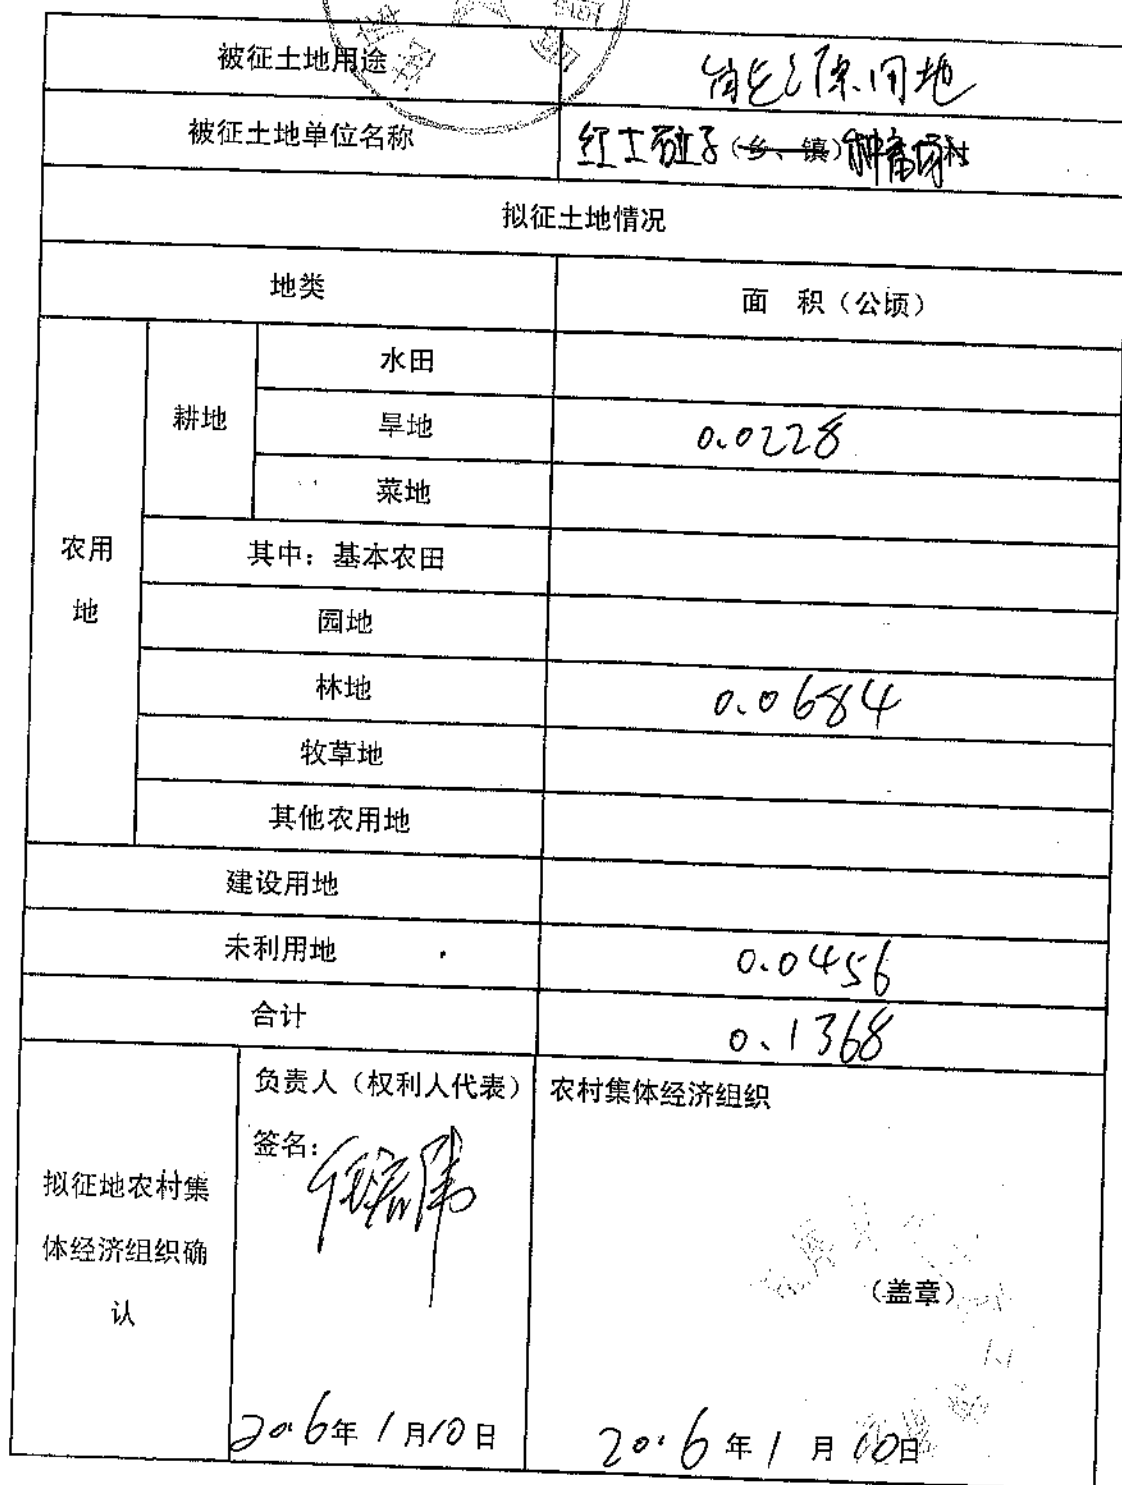 被征土地用途
能源用地
被征土地单位名称
红土崖子（乡、镇）种畜场村
拟征土地情况
地类
面 积（公顷）
农用
地
耕地
水田
旱地
0.0228
菜地
其中：基本农田
园地
林地
0.0684
牧草地
其他农用地
建设用地
未利用地
0.0456
合计
0.1368
拟征地农村集
体经济组织确
认
负责人（权利人代表）
签名：
2016年1月10日
农村集体经济组织
（盖章）
2016年1月10日